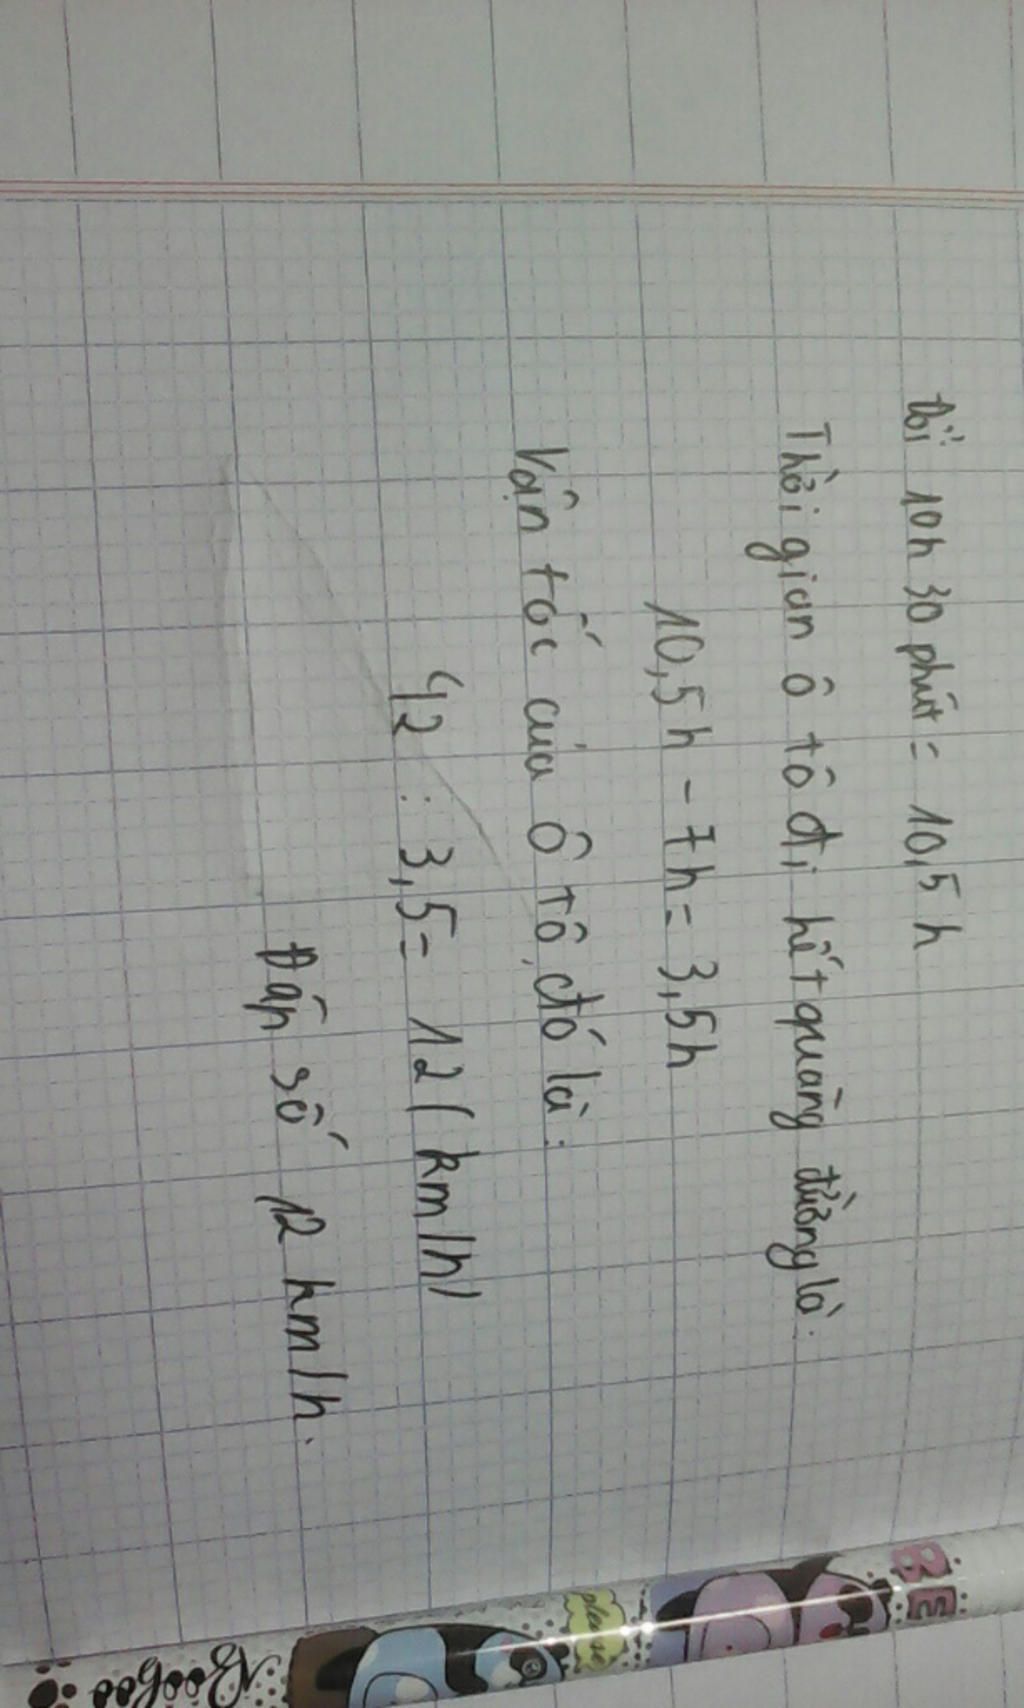 Đổi 10h 30 phút = 10,5 h
Thời gian ô tô đi hết quãng đường là:
10,5h - 7h = 3,5h
Vận tốc của ô tô đó là:
42 : 3,5 = 12 (km/h)
Đáp số 12 km/h.
BE
please
Booboo